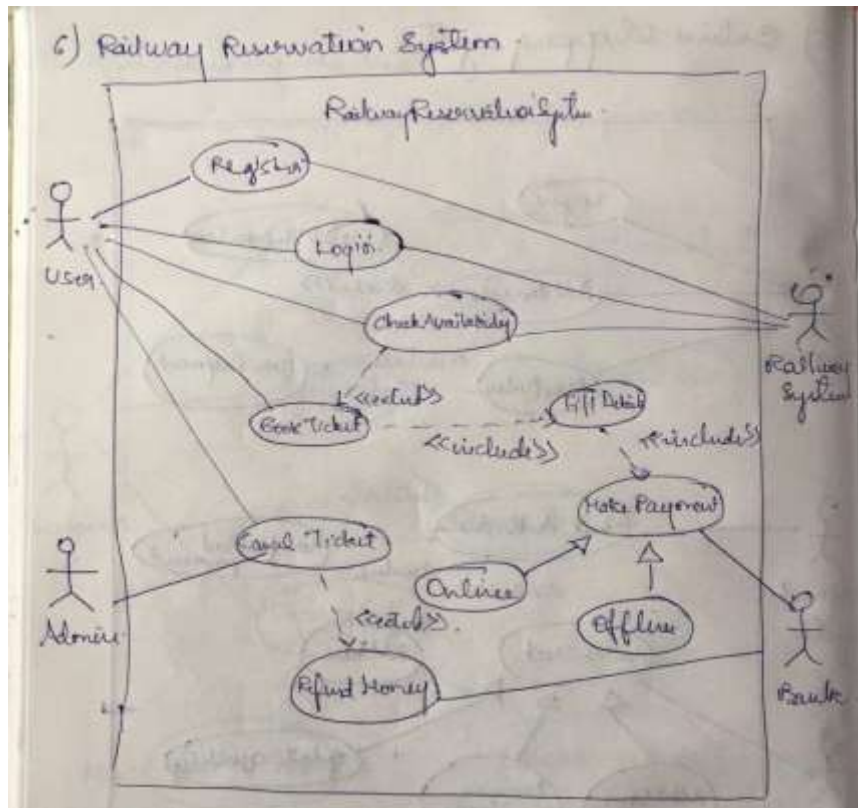 6) Railway Reservation System
Railway Reservation System
Register
Login
User
Check Availability
Railway
System
Book Ticket
Fill Details
<<include>>
<<include>>
Make Payment
Cancel Ticket
Online
Offline
Admin
Refund Money
Bank